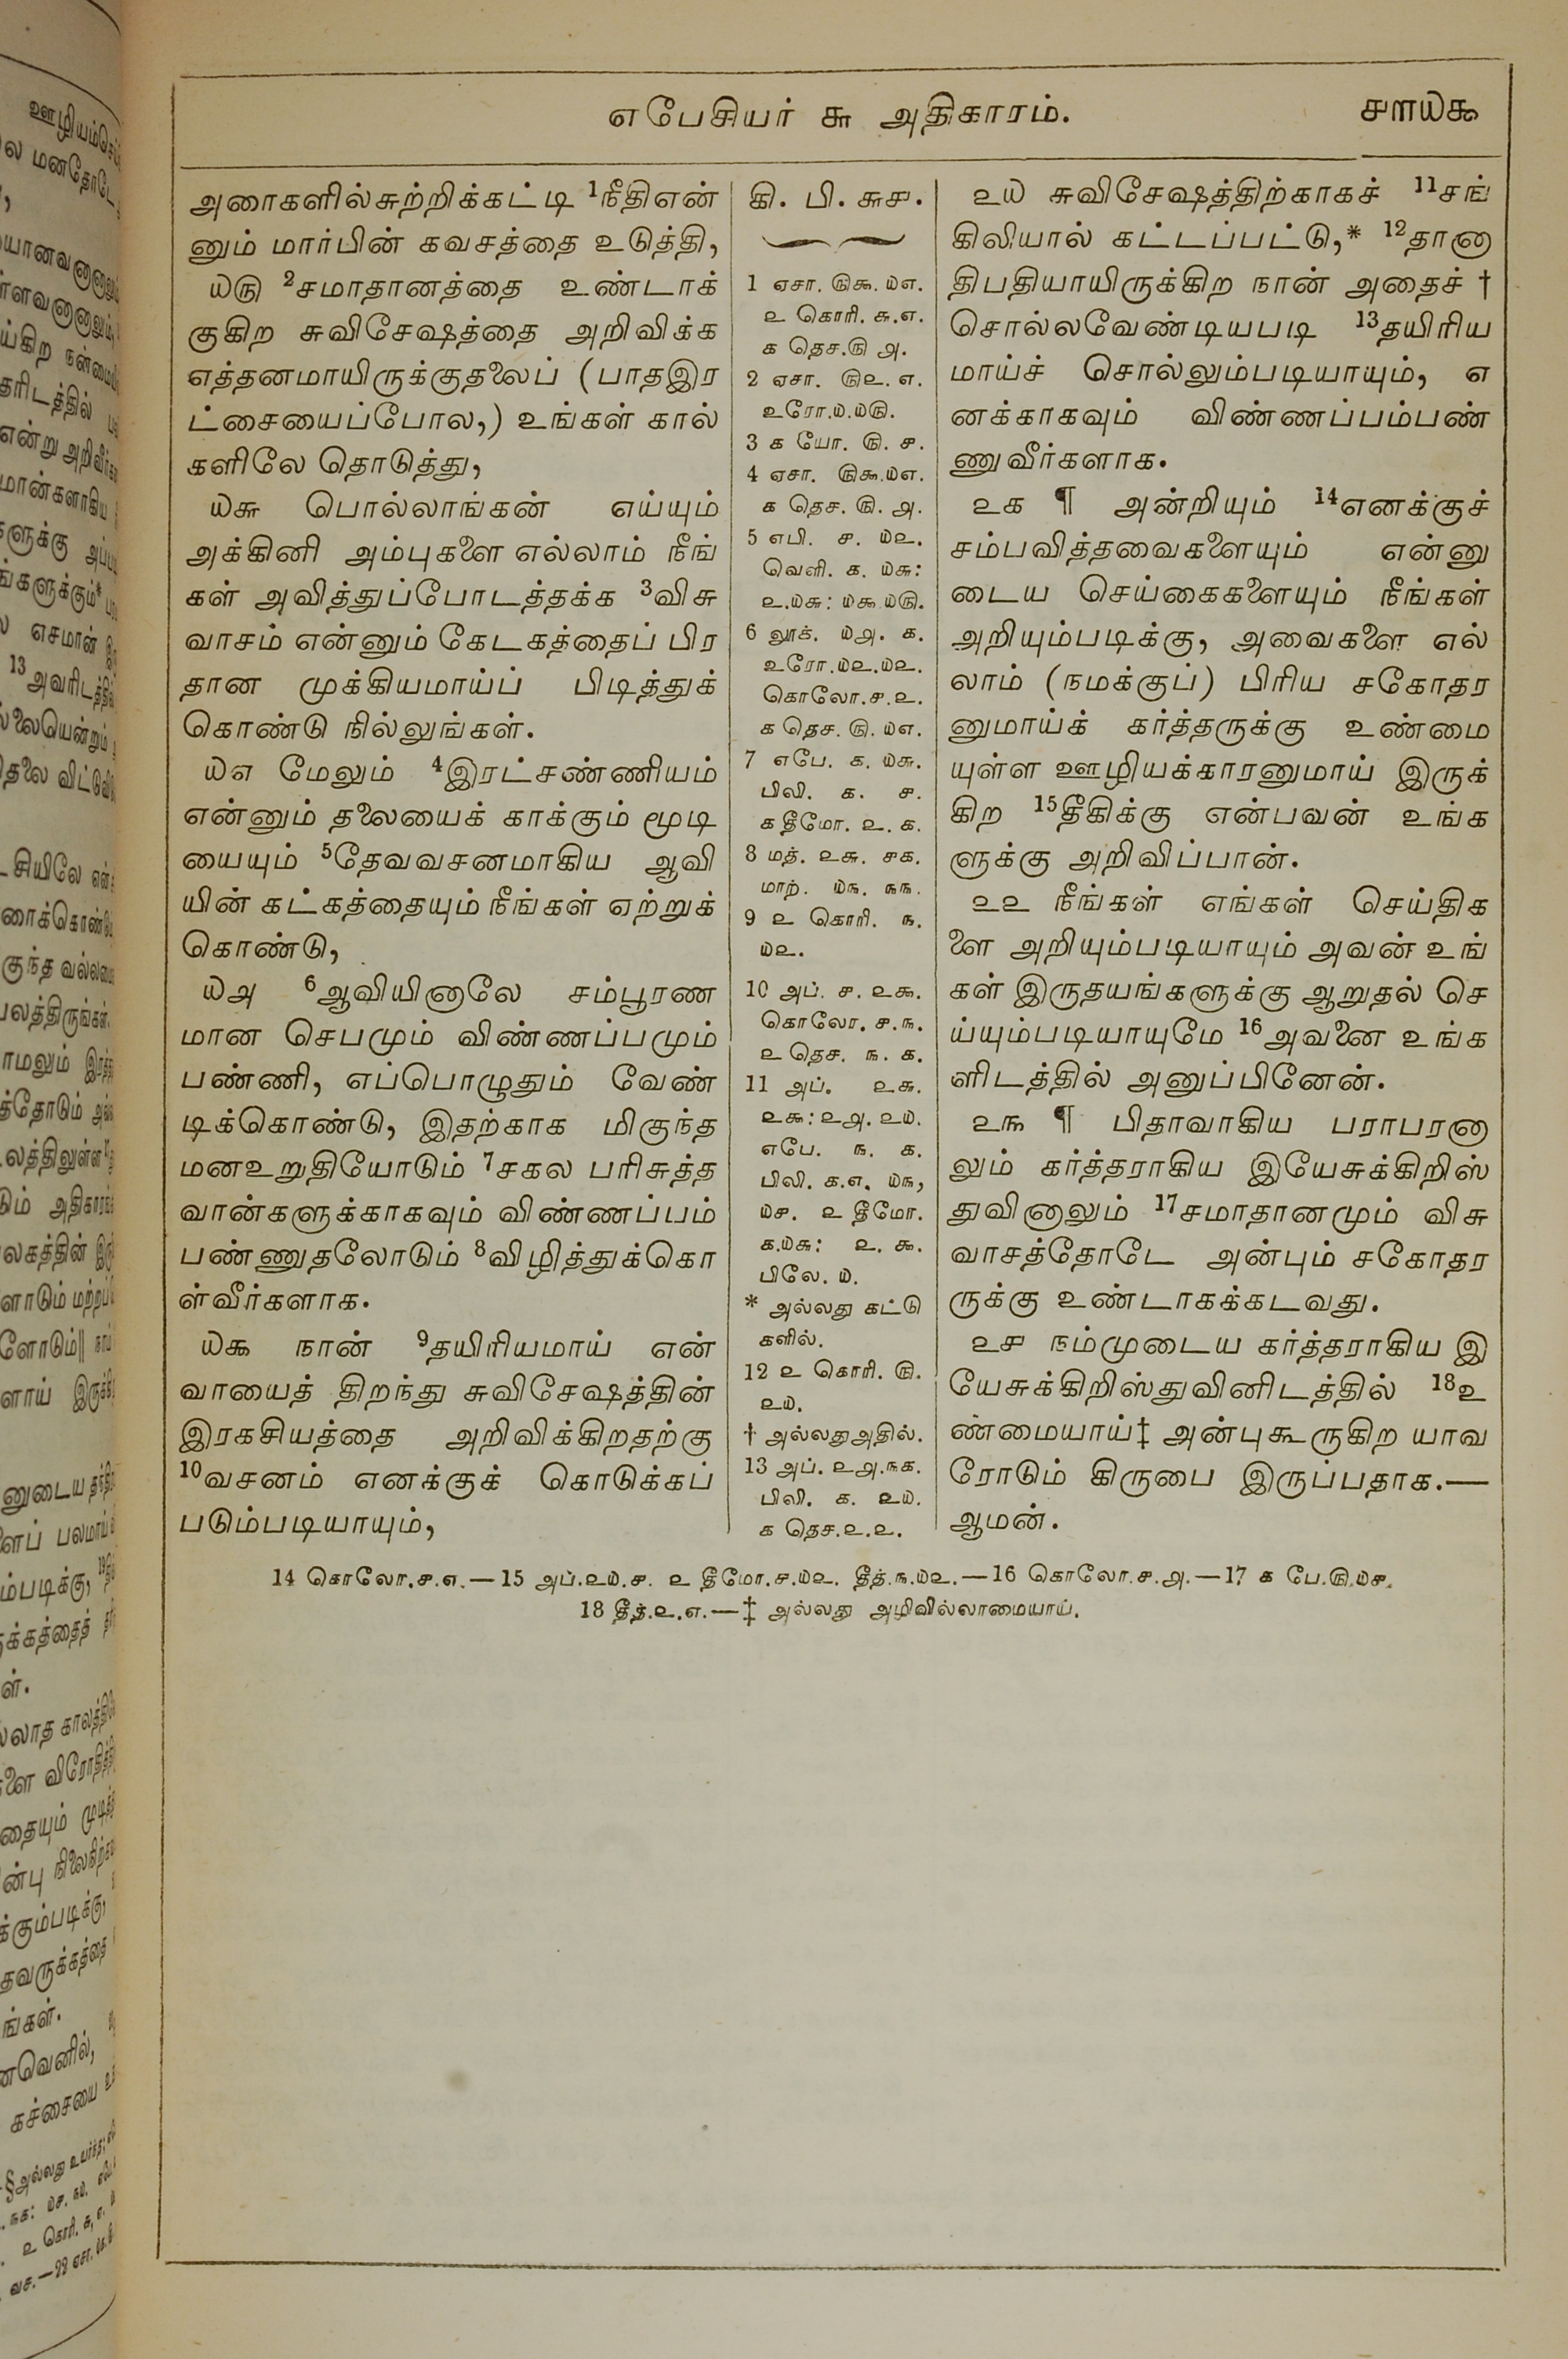 எபேசியர் ௬ அதிகாரம்.
௪௱௰௯
அரைகளில்சுற்றிக்கட்டி 1நீதிஎன்
னும் மார்பின் கவசத்தை உடுத்தி,
௰௫ 2சமாதானத்தை உண்டாக்
குகிற சுவிசேஷத்தை அறிவிக்க
எத்தனமாயிருக்குதலைப் (பாதஇர
ட்சையைப்போல,) உங்கள் கால்
களிலே தொடுத்து,
௰௬ பொல்லாங்கன் எய்யும்
அக்கினி அம்புகளை எல்லாம் நீங்
கள் அவித்துப்போடத்தக்க 3விசு
வாசம் என்னும் கேடகத்தைப் பிர
தான முக்கியமாய்ப் பிடித்துக்
கொண்டு நில்லுங்கள்.
௰௭ மேலும் 4இரட்சண்ணியம்
என்னும் தலையைக் காக்கும் மூடி
யையும் 5தேவவசனமாகிய ஆவி
யின் கட்கத்தையும் நீங்கள் ஏற்றுக்
கொண்டு,
௰௮ 6ஆவியினாலே சம்பூரண
மான செபமும் விண்ணப்பமும்
பண்ணி, எப்பொழுதும் வேண்
டிக்கொண்டு, இதற்காக மிகுந்த
மனஉறுதியோடும் 7சகல பரிசுத்த
வான்களுக்காகவும் விண்ணப்பம்
பண்ணுதலோடும் 8விழித்துக்கொ
ள்வீர்களாக.
௰௯ நான் 9தயிரியமாய் என்
வாயைத் திறந்து சுவிசேஷத்தின்
இரகசியத்தை அறிவிக்கிறதற்கு
10வசனம் எனக்குக் கொடுக்கப்
படும்படியாயும்,
கி. பி. ௬௪.
1 ஏசா. ௫௯. ௰௭.
௨ கொரி. ௬.௭.
௧ தெச.௫ ௮.
2 ஏசா. ௫௨. ௭.
உரோ.௰.௰௫.
3 ௧ யோ. ௫. ௪.
4 ஏசா. ௫௯.௰௭.
௧ தெச. ௫. ௮.
5 எபி. ௪. ௰௨.
வெளி. ௧. ௰௬:
௨.௰௬: ௰௯ ௰௫.
6 லூக். ௰௮. ௧.
உரோ.௰௨.௰௨.
கொலோ.௪.௨.
௧ தெச. ௫. ௰௭.
7 எபே. ௧. ௰௬.
பிலி. ௧. ௪.
௧ தீமோ. ௨. ௧.
8 மத். ௨௬. ௪௧.
மாற். ௰௩. ௩௩.
9 ௨ கொரி. ௩.
௰௨.
10 அப். ௪. ௨௯.
கொலோ. ௪.௩.
௨ தெச. ௩. ௧.
11 அப். ௨௬.
௨௯: ௨௮. ௨௰.
எபே. ௩. ௧.
பிலி. ௧.௭. ௰௩,
௰௪. ௨ தீமோ.
௧.௰௬: ௨. ௯.
பிலே. ௰.
* அல்லது கட்டு
களில்.
12 ௨ கொரி. ௫.
௨௰.
† அல்லதுஅதில்.
13 அப். ௨௮.௩௧.
பிலி. ௧. ௨௰.
௧ தெச.௨.௨.
௨௰ சுவிசேஷத்திற்காகச் 11சங்
கிலியால் கட்டப்பட்டு,* 12தானா
திபதியாயிருக்கிற நான் அதைச் †
சொல்லவேண்டியபடி 13தயிரிய
மாய்ச் சொல்லும்படியாயும், எ
னக்காகவும் விண்ணப்பம்பண்
ணுவீர்களாக.
௨௧ ¶ அன்றியும் 14எனக்குச்
சம்பவித்தவைகளையும் என்னு
டைய செய்கைகளையும் நீங்கள்
அறியும்படிக்கு, அவைகளை எல்
லாம் (நமக்குப்) பிரிய சகோதர
னுமாய்க் கர்த்தருக்கு உண்மை
யுள்ள ஊழியக்காரனுமாய் இருக்
கிற 15தீகிக்கு என்பவன் உங்க
ளுக்கு அறிவிப்பான்.
௨௨ நீங்கள் எங்கள் செய்திக
ளை அறியும்படியாயும் அவன் உங்
கள் இருதயங்களுக்கு ஆறுதல் செ
ய்யும்படியாயுமே 16அவனை உங்க
ளிடத்தில் அனுப்பினேன்.
௨௩ ¶ பிதாவாகிய பராபரனா
லும் கர்த்தராகிய இயேசுக்கிறிஸ்
துவினாலும் 17சமாதானமும் விசு
வாசத்தோடே அன்பும் சகோதர
ருக்கு உண்டாகக்கடவது.
௨௪ நம்முடைய கர்த்தராகிய இ
யேசுக்கிறிஸ்துவினிடத்தில் 18உ
ண்மையாய்‡ அன்புகூருகிற யாவ
ரோடும் கிருபை இருப்பதாக.—
ஆமன்.
14 கொலோ.௪.௭.—15 அப்.௨௰.௪. ௨ தீமோ.௪.௰௨. தீத்.௩.௰௨.—16 கொலோ.௪.௮.—17 ௧ பே.௫.௰௪.
18 தீத்.௨.௭.—‡ அல்லது அழிவில்லாமையாய்.